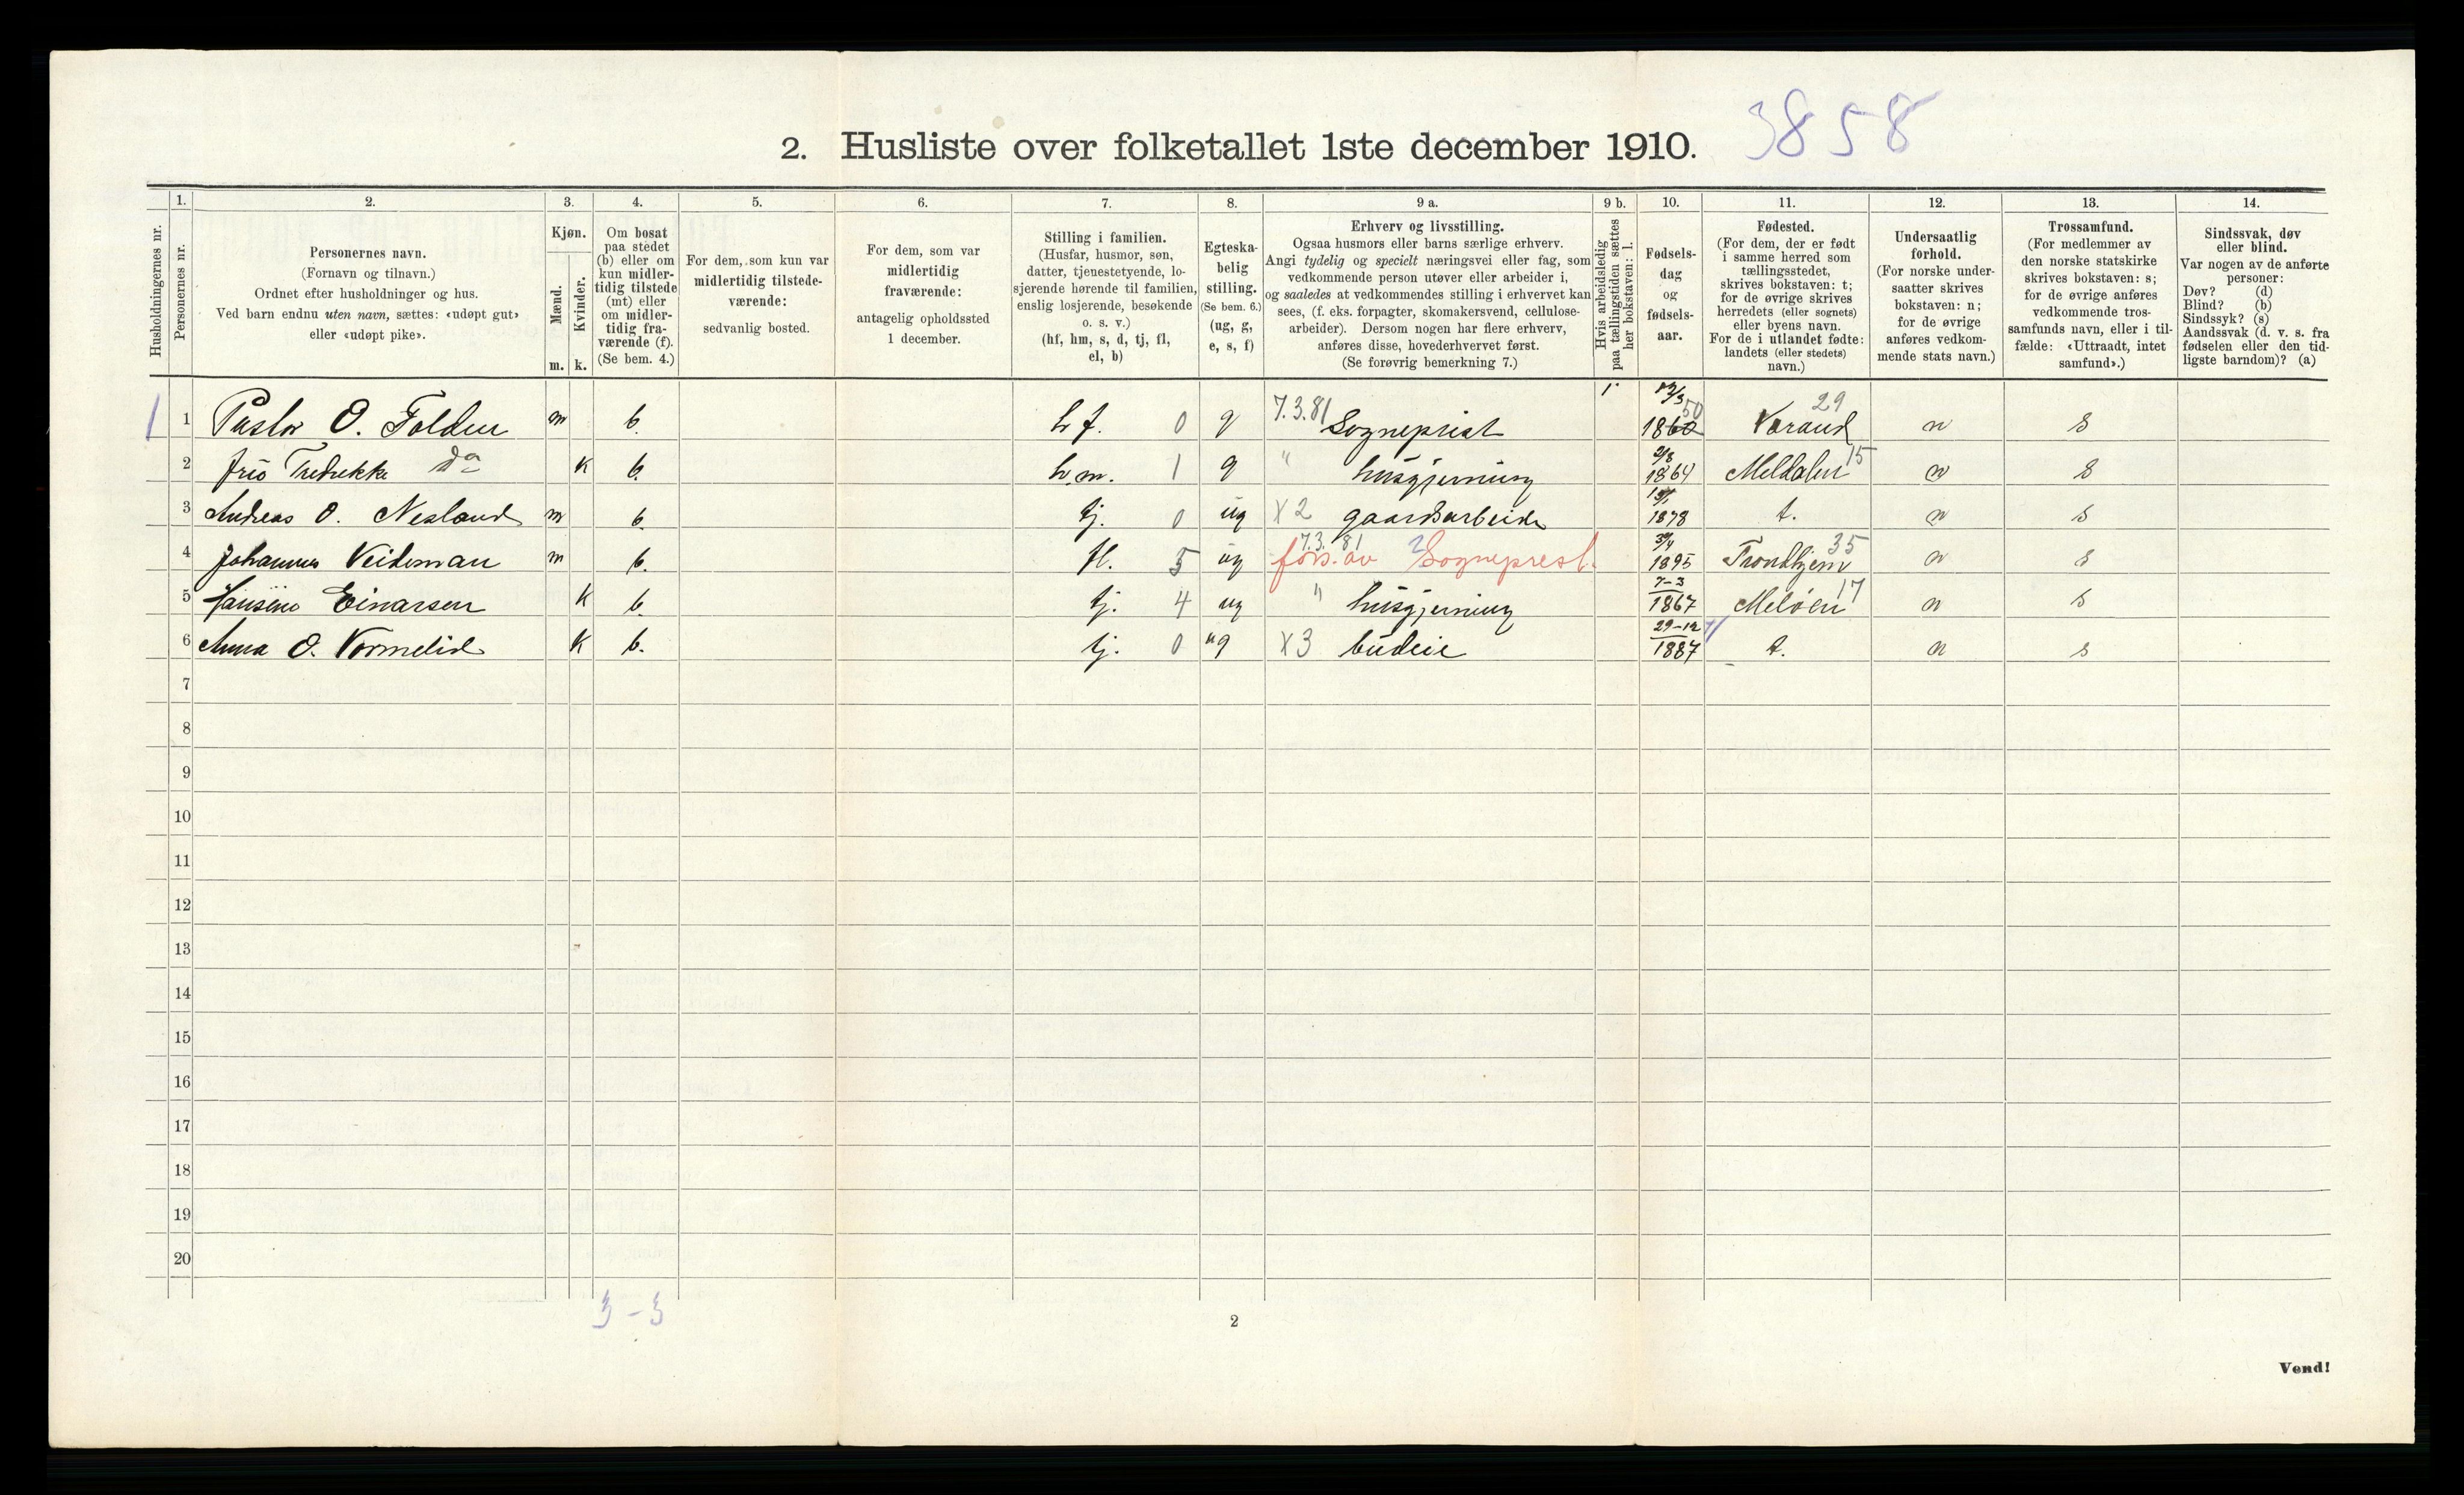 2. Husliste over folketallet 1ste december 1910. 3858
Husholdningernes nr.
1. Personernes nr.
2. Personernes navn.
(Fornavn og tilnavn.)
Ordnet efter husholdninger og hus.
Ved barn endnu uten navn, sættes: «udøpt gut»
eller «udøpt pike».
3. Kjøn.
Mænd. Kvinder.
m. k.
4. Om bosat
paa stedet
(b) eller om
kun midler-
tidig tilstede
(mt) eller
om midler-
tidig fra-
værende (f).
(Se bem. 4.)
5. For dem, som kun var
midlertidig tilstede-
værende:
sedvanlig bosted.
6. For dem, som var
midlertidig
fraværende:
antagelig opholdssted
1 december.
7. Stilling i familien.
(Husfar, husmor, søn,
datter, tjenestetyende, lo-
sjerende hørende til familien,
enslig losjerende, besøkende
o. s. v.)
(hf, hm, s, d, tj, fl,
el, b)
8. Egteska-
belig
stilling.
(Se bem. 6.)
(ug, g,
e, s, f)
9 a. Erhverv og livsstilling.
Ogsaa husmors eller barns særlige erhverv.
Angi tydelig og specielt næringsvei eller fag, som
vedkommende person utøver eller arbeider i,
og saaledes at vedkommendes stilling i erhvervet kan
sees, (f. eks. forpagter, skomakersvend, cellulose-
arbeider). Dersom nogen har flere erhverv,
anføres disse, hovederhvervet først.
(Se forøvrig bemerkning 7.)
9 b. Hvis arbeidsledig
paa tællingstiden sættes
her bokstaven: l.
10. Fødsels-
dag
og
fødsels-
aar.
11. Fødested.
(For dem, der er født
i samme herred som
tællingsstedet,
skrives bokstaven: t;
for de øvrige skrives
herredets (eller sognets)
eller byens navn.
For de i utlandet fødte:
landets (eller stedets)
navn.)
12. Undersaatlig
forhold.
(For norske under-
saatter skrives
bokstaven: n;
for de øvrige
anføres vedkom-
mende stats navn.)
13. Trossamfund.
(For medlemmer av
den norske statskirke
skrives bokstaven: s;
for de øvrige anføres
vedkommende tros-
samfunds navn, eller i til-
fælde: «Uttraadt, intet
samfund».)
14. Sindssvak, døv
eller blind.
Var nogen av de anførte
personer:
Døv? (d)
Blind? (b)
Sindssyk? (s)
Aandssvak (d. v. s. fra
fødselen eller den tid-
ligste barndom)? (a)
1 1 Pastor O. Folden m b. hf. 0 g 7.3.81 Sogneprest 1860 50 29 n s
2 Fredrikke do k b. h.m. 1 g " husgjerning 2/8 1864 Meldalen 15 n s
3 Andreas O. Nesland m b. tj. 0 ug X2 gaardsarbeide 1878 t. n s
4 Johannes Veideman m b. fl. 5 ug 7.3.81 fors. av Sogneprest. 1895 Trondhjem 35 n s
5 Einarsen k b. tj. 4 ug " husgjerning 7-3 1867 Meløen 17 n s
6 Anna O. Vormelid k b. tj. 0 ug X3 budeie 29-12 1887 t. n s
7
8
9
10
11
12
13
14
15
16
17
18
19
20
3 - 3
2
Vend!